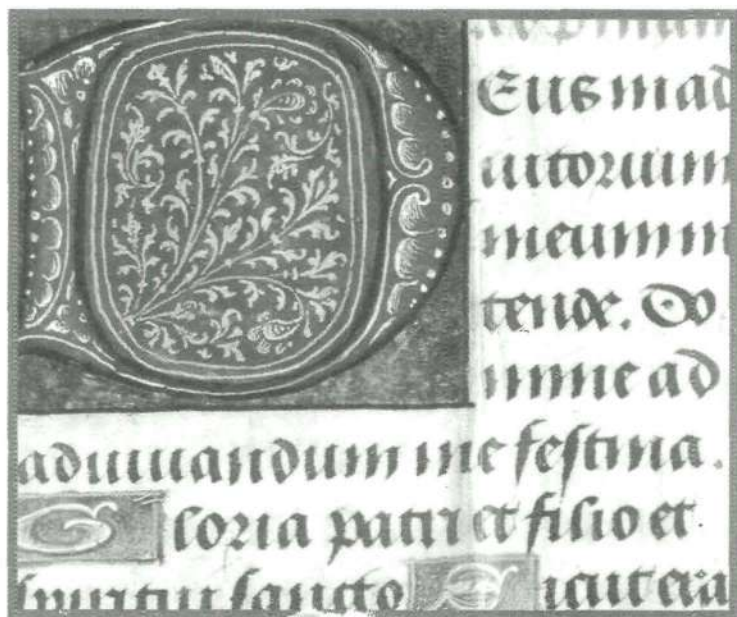 Deus in ad
iutorium
meum in
tende. Do
mine ad
adiuuandum me festina.
Gloria patri et filio et
spiritui sancto Sicut era